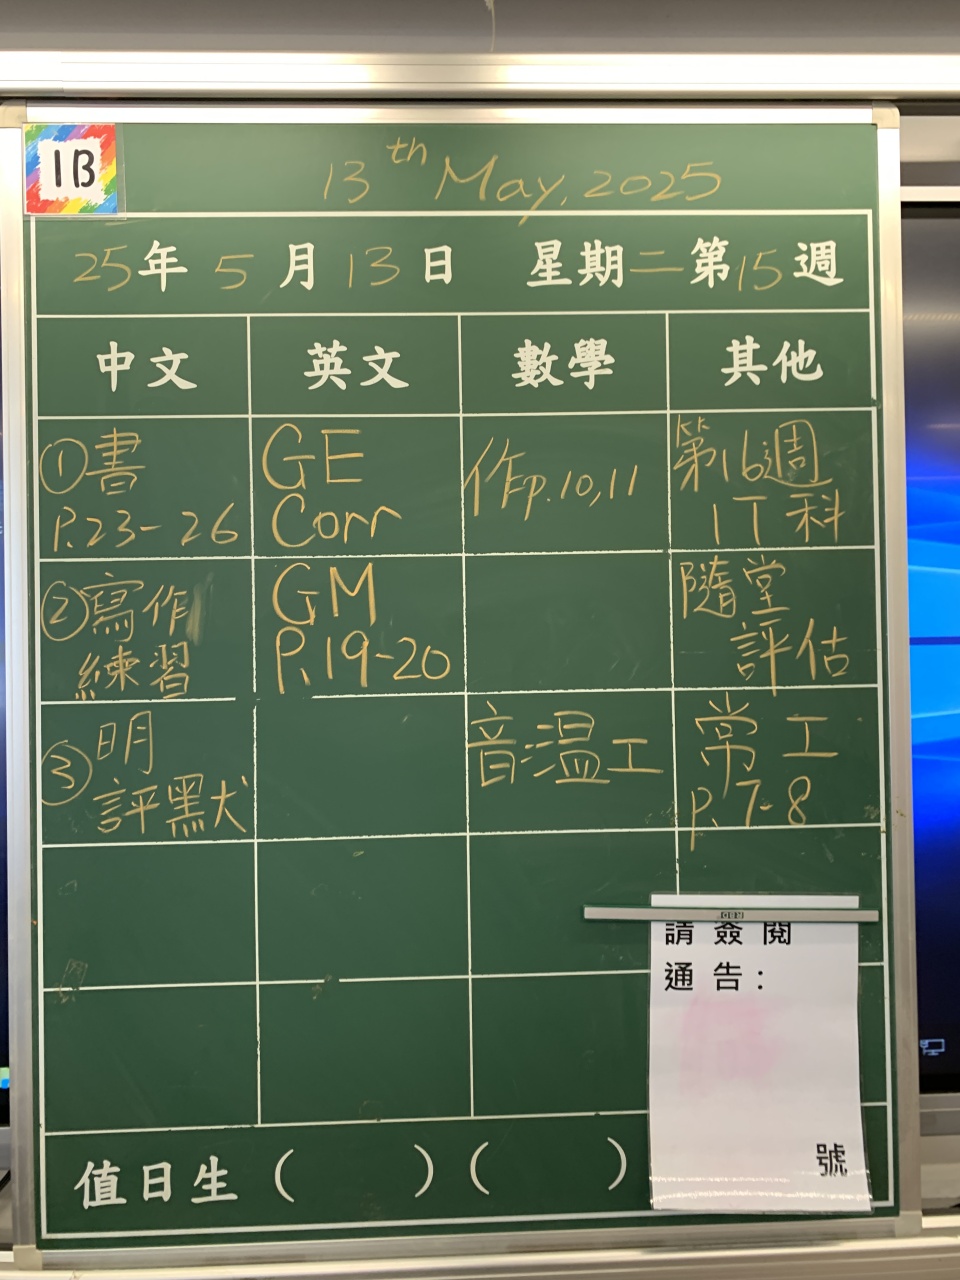 1B
13th May, 2025
25年 5月 13日 星期二第15週
中文 英文 數學 其他
①書
P.23-26
GE
Corr
作p.10,11
第16週
IT科
②寫作
練習
GM
P.19-20
隨堂
評估
③明
評默
音:溫工
常工
p.7-8
請簽閱
通告:
號
值日生 ( ) ( )